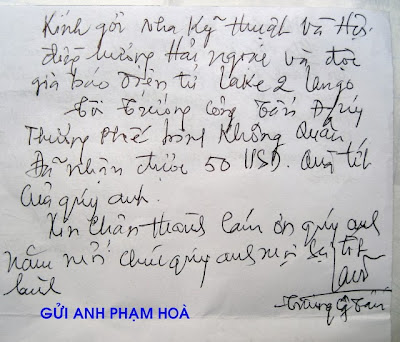 Kính gởi Nha Kỹ Thuật và Hội
điệp hương Hải ngoại và đọc
giả báo Điện tử Lake 2 lango
Tôi Trương Công Tấn Đ/úy
Thương Phế binh Không Quân
Đã nhận được 50 USD. Quà tết
của qúy anh.
Xin chân thành cám ơn qúy anh
năm mới chúc qúy anh mọi sự tốt
lành
Trương Công Tấn
GỬI ANH PHẠM HOÀ